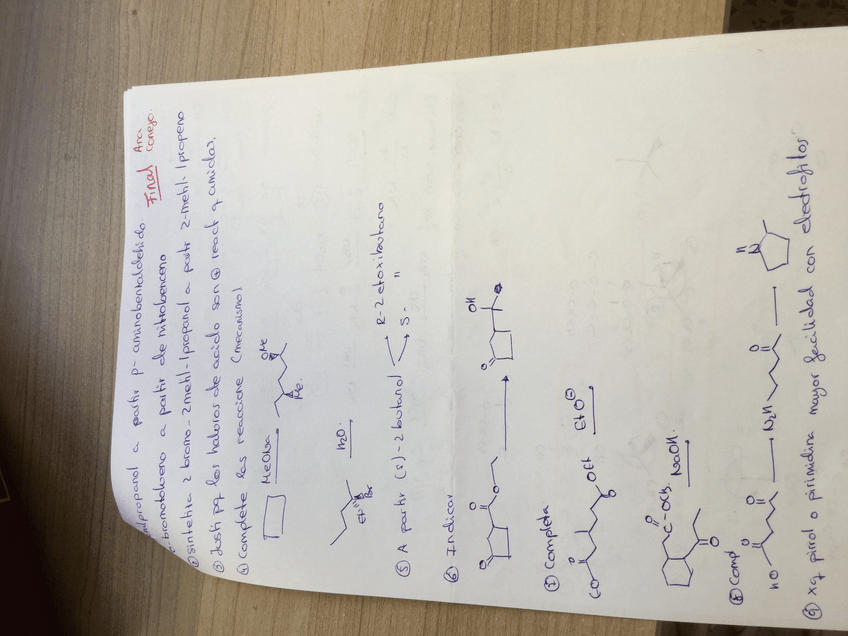 propanol a partir p-aminobenzaldehido.
-bromotolueno a partir de nitrobenceno
Final Ana Conejo.
sintetiza 2 bromo-2metil-1propanol a partir 2-metil-1propeno
③ Justi pq los haluros de acido son ⊕ react q amidas.
④ Complete las reaccione (mecanismo)
MeONa
OMe
Me.
Et
Br
H₂O.
⑤ A partir (s)-2butanol
R-2 etoxibutano
S- "
⑥ Indicar
O
O
O
O
OH
⑦ Completa
O
OEt
EtO⊖
O
C-OCH₃
O
NaOH.
⑧ Comp
HO
O
O
H₂N
O
H
N
⑨ xq pirrol o pirimidina mayor facilidad con electrofilos